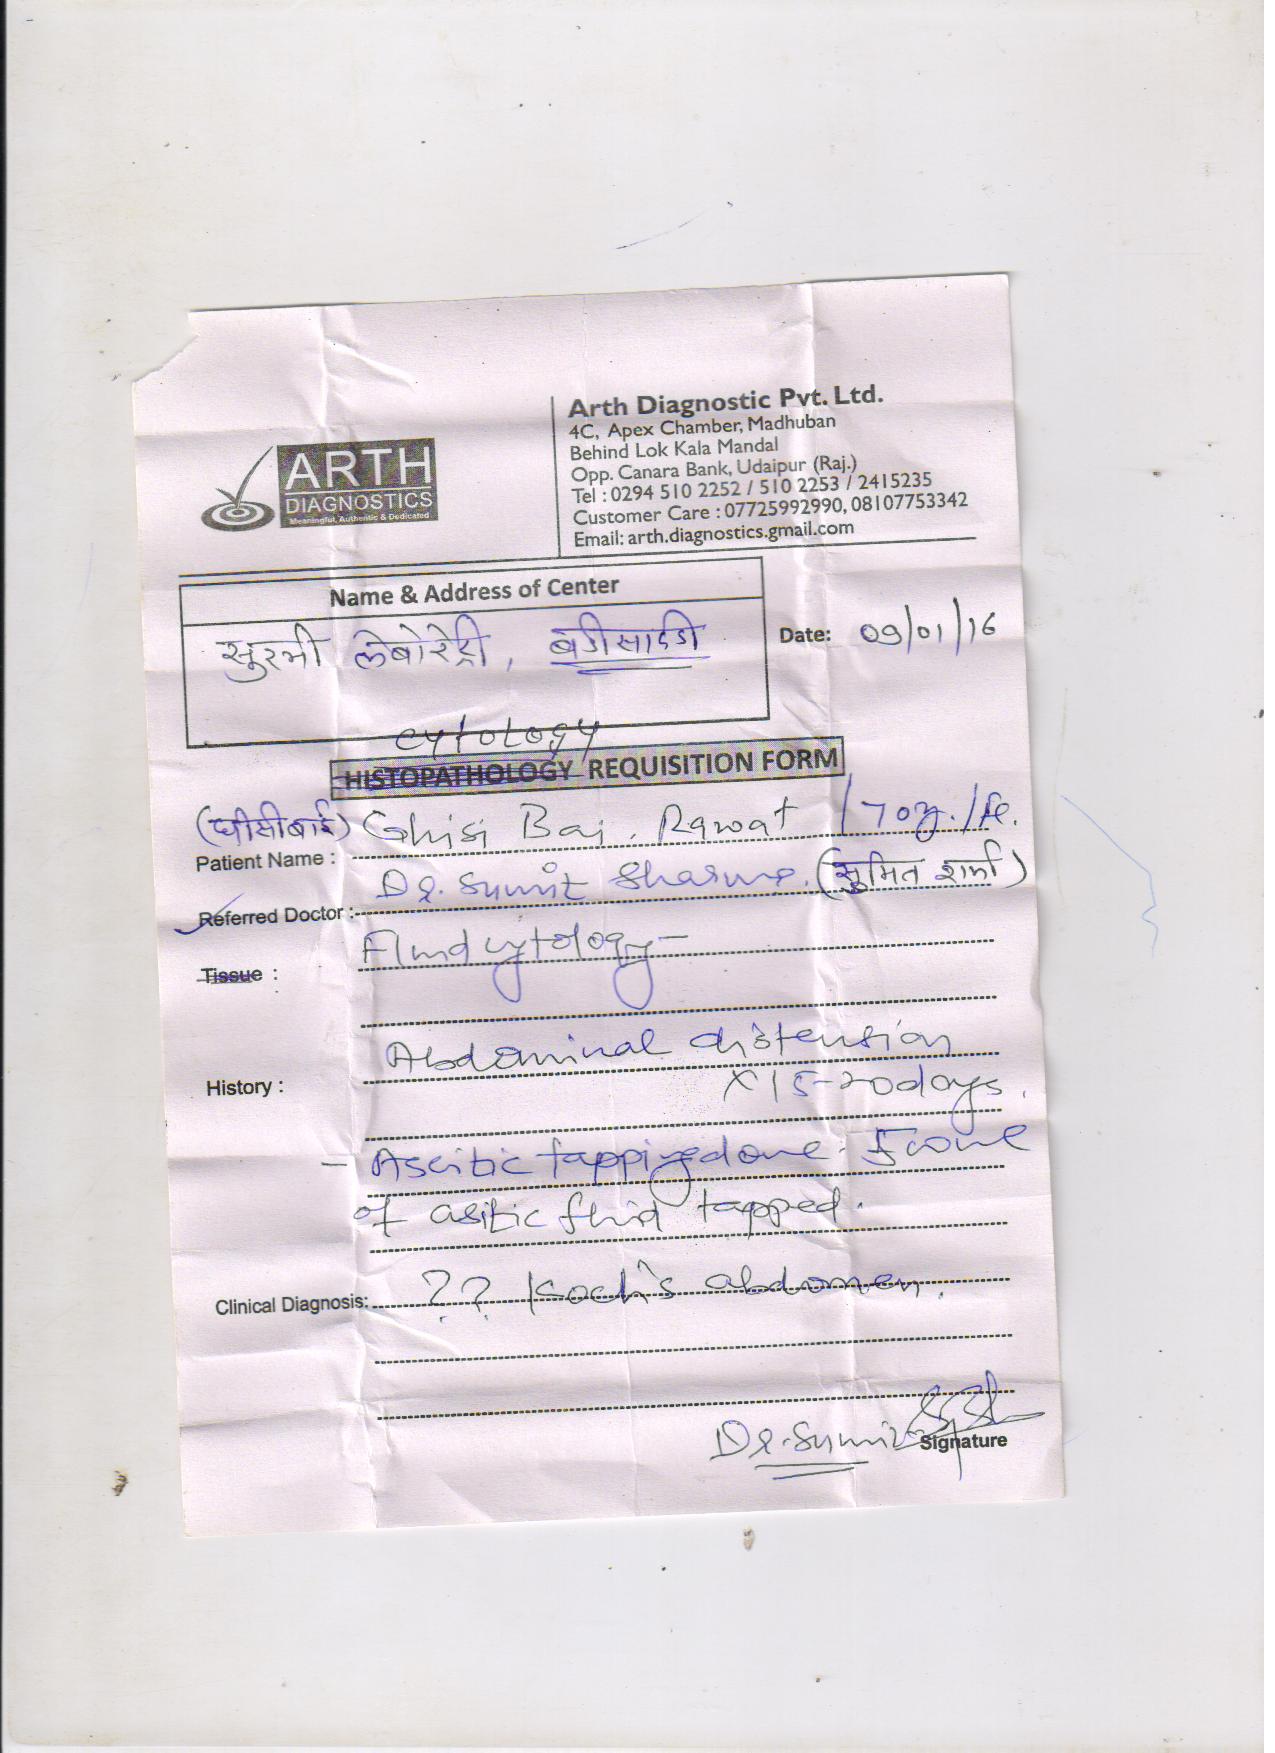 Arth Diagnostic Pvt. Ltd.
4C, Apex Chamber, Madhuban
Behind Lok Kala Mandal
Opp. Canara Bank, Udaipur (Raj.)
Tel : 0294 510 2252 / 510 2253 / 2415235
Customer Care : 07725992990, 08107753342
Email: arth.diagnostics.gmail.com
ARTH
DIAGNOSTICS
Meaningful, Authentic & Dedicated
Name & Address of Center
सुरभी लेबोरेट्री, बडीसादडी
Date: 09/01/16
cytology
HISTOPATHOLOGY REQUISITION FORM
(घीसीबाई) Ghisi Bai. Rawat /70y./fe.
Patient Name :
Dr. Sumit Sharma. (सुमित शर्मा)
Referred Doctor :
Fluid cytology-
Tissue :
Abdominal distension
History :
X 15-20days.
- Ascitic tapping done.
of asitic fluid tapped.
Clinical Diagnosis: ?? Koch's abdomen.
Dr. Sumit
Signature